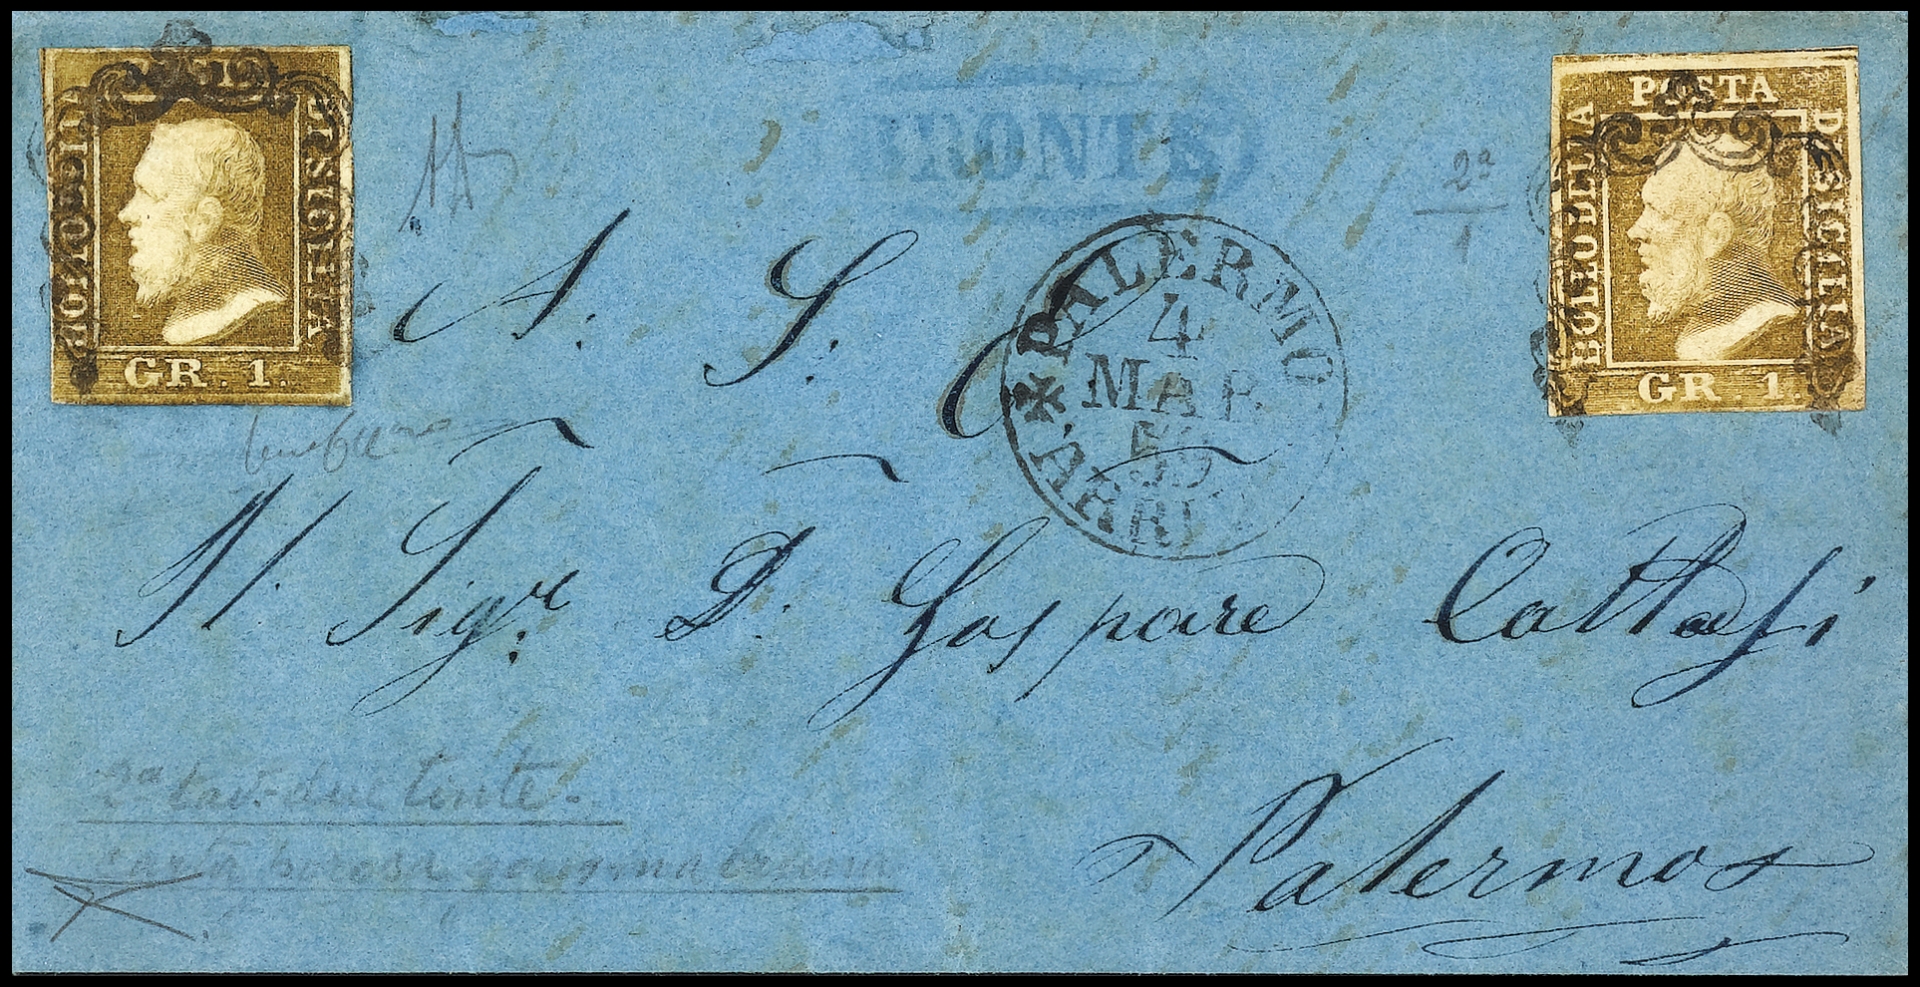 POSTA
BOLLO DI SICILIA
BOLLO DELLA
DI SICILIA
GR. 1.
GR. 1.
BRONTE
2ª
1
PALERMO
4
MAR
59
ARRIVO
A. S. E.
Il Sigr. D. Gaspare Cattafi
Palermo
2ª tav. due tinte
carta porosa gomma bruna